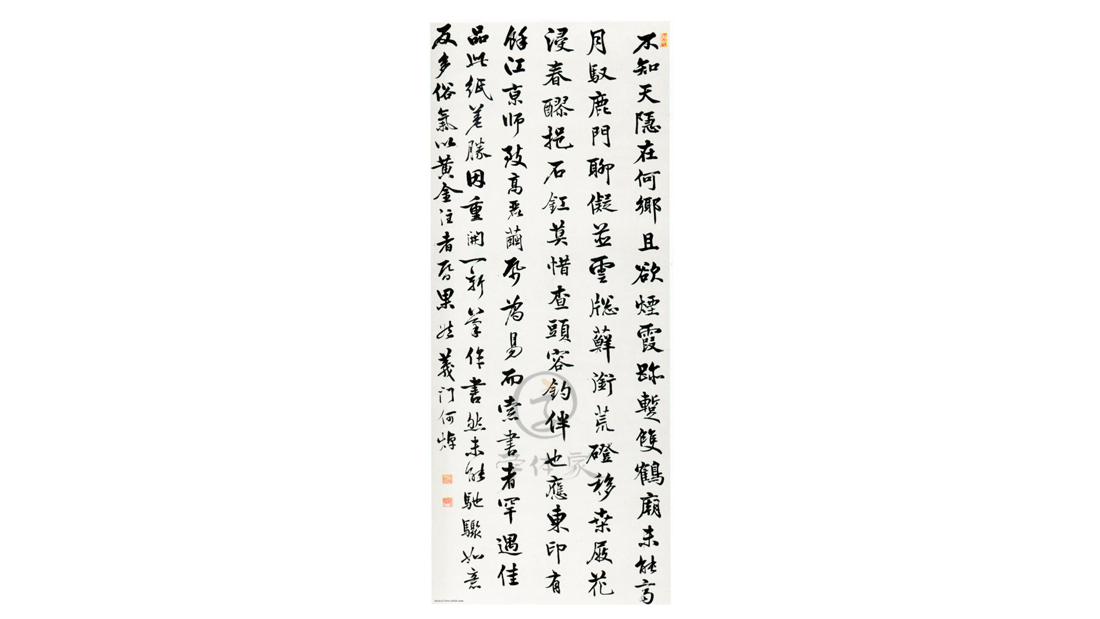 不知天隱在何鄉且欲煙霞跡蹔雙鶴廟未能高
月馭鹿門聊儗並雲牎蘚銜荒磴移桒屐花
浸春醪挹石釭莫惜查頭容釣伴也應東印有
餘江京師致高麗繭帋為易而索書者罕遇佳
品此紙差勝因重開一新筆作書然未能馳驟如意
反多俗氣以黃金注者昏果然義门何焯